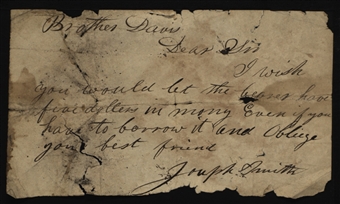 Brother Davis
Dear Sir
I wish
you would let the bearer have
five dollers in mony Even if you
have to borrow it and Oblige
your best friend
Joseph Smith